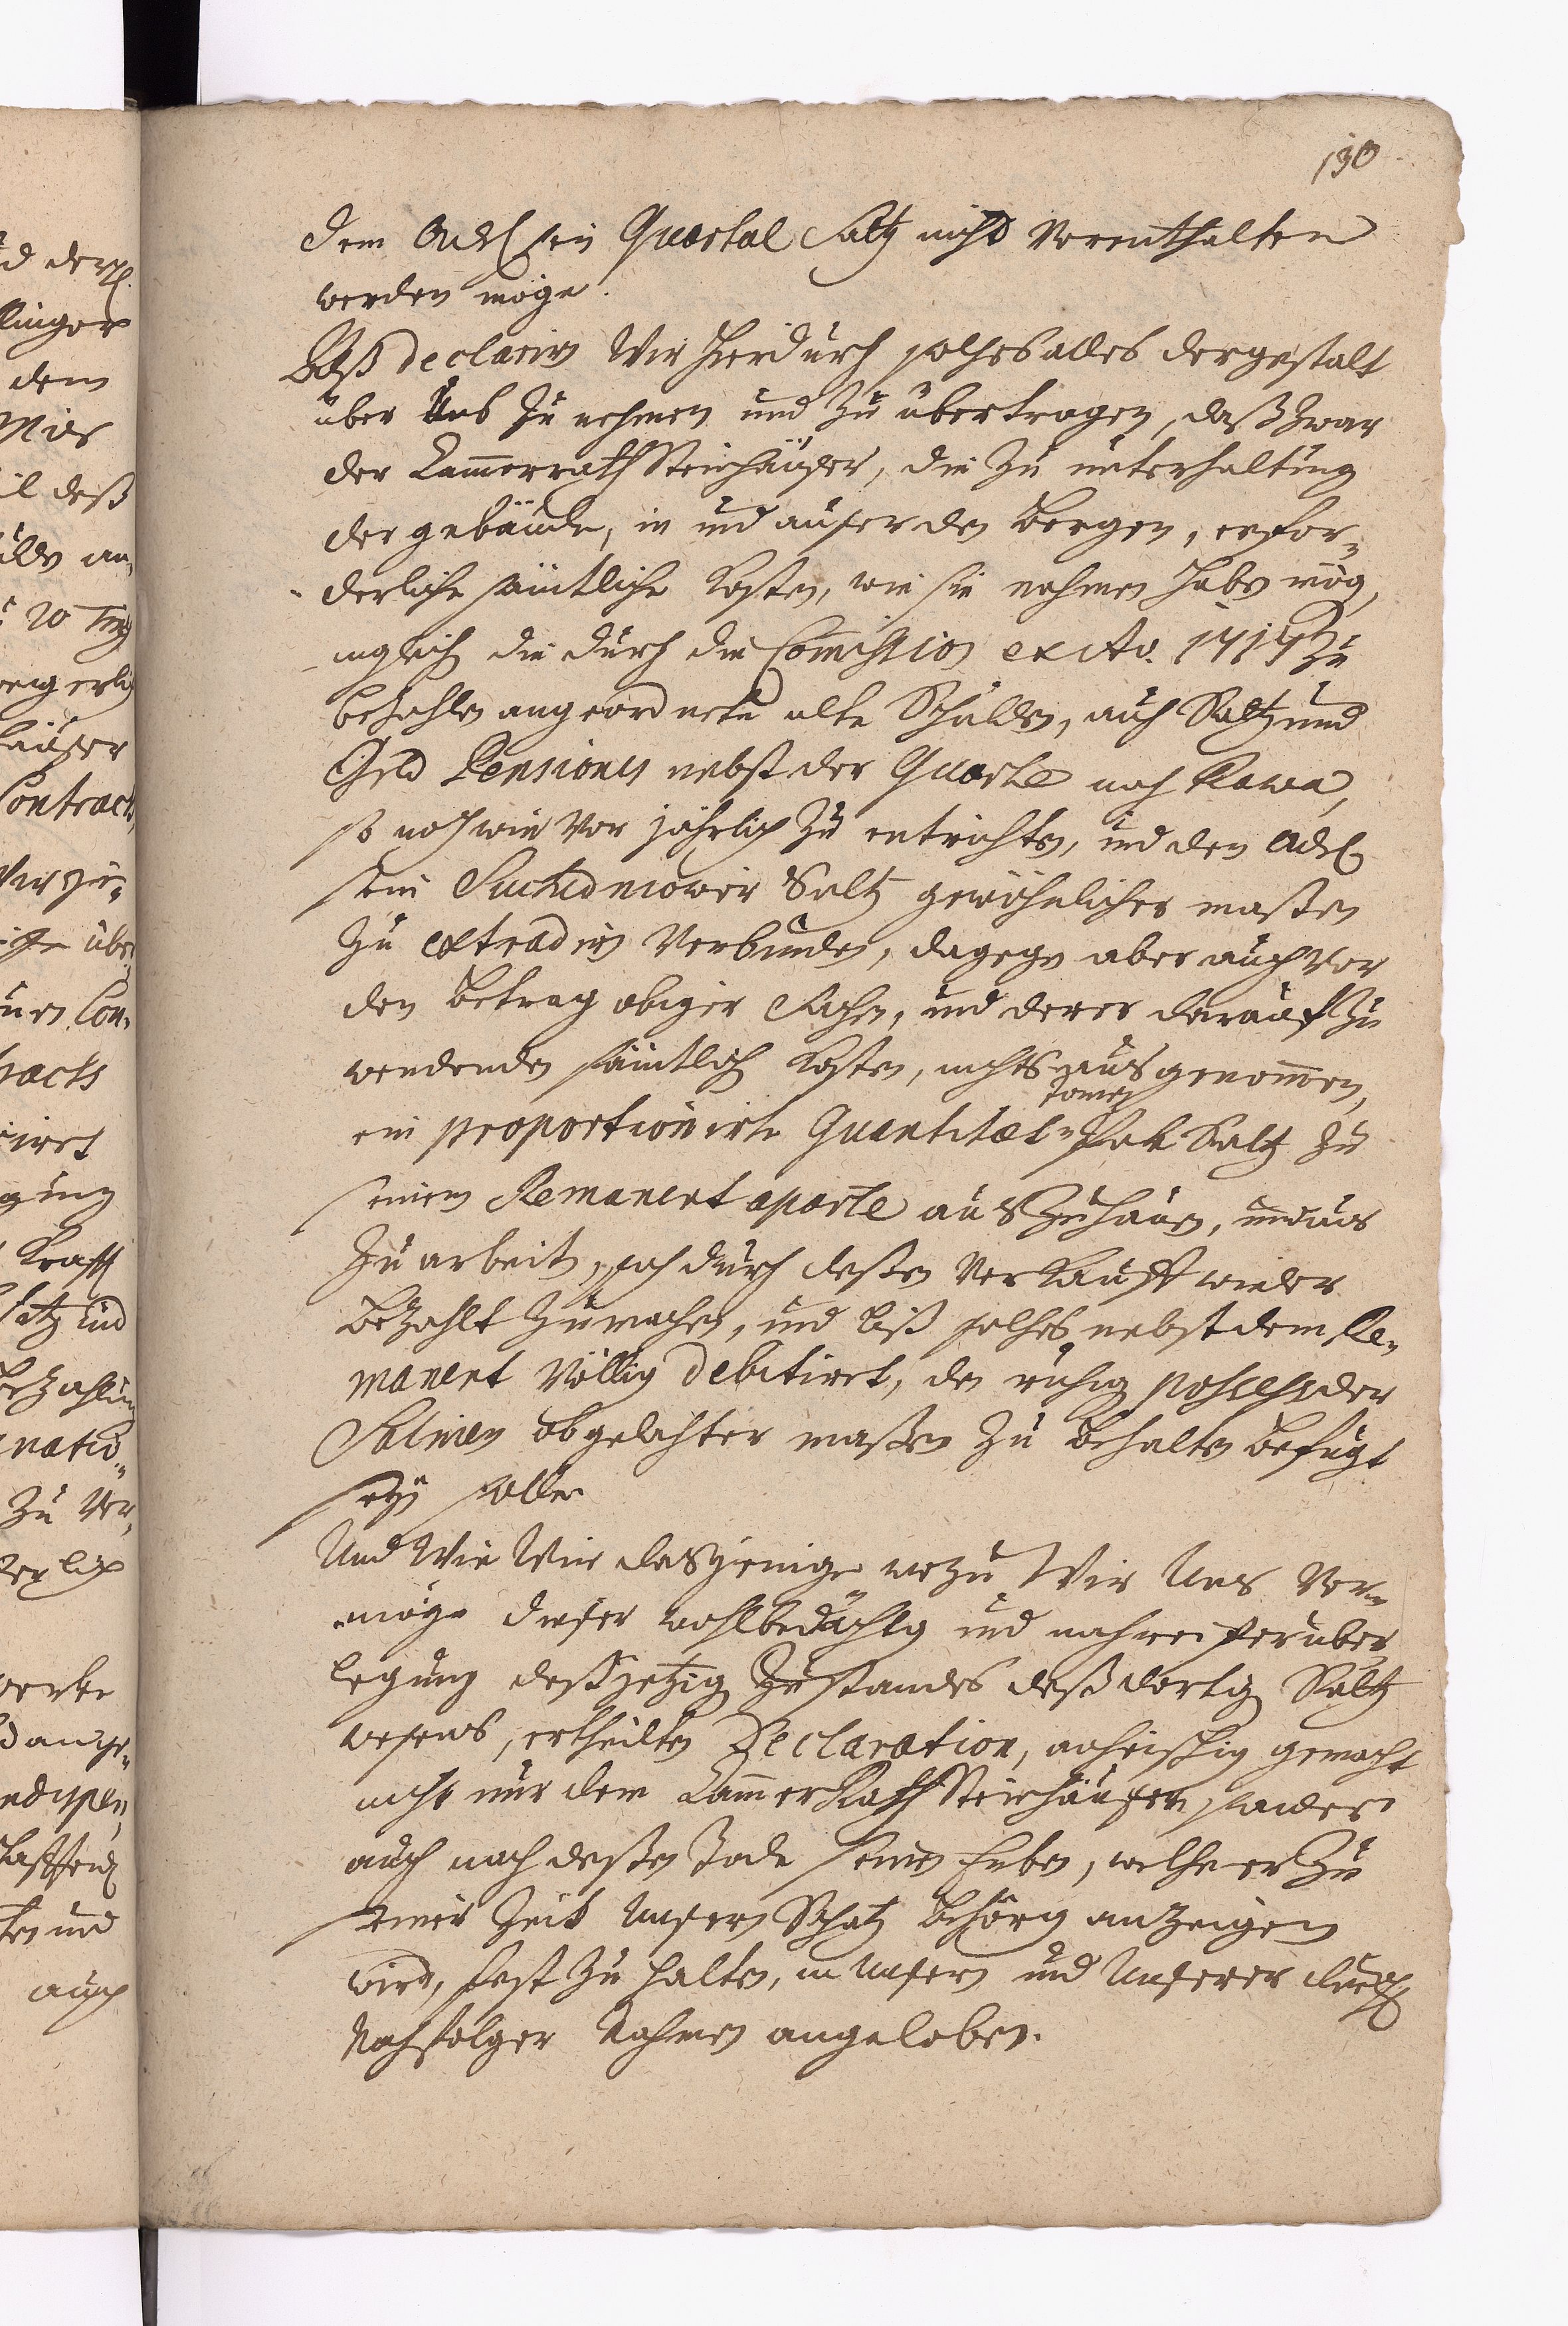 190
dem Adel sein Quartal Saltz nicht vorenthalten
werden möge.
Alß declariren Wir hierdurch solches alles dergestalt
über Uns zu nehmen und zu übertragen, daß zwar
der Cammerrath Steinhäuser, die zu unterhaltung
der gebäude, in und auser den Bergen, erfor-
derliche sämtliche Kosten, wie sie nahmen haben mög,
ingleich die durch die Commission ex Ao. 1717 zu
bezahlen angeordnete alte Schulden, auch Saltz und
Geld Pensiones nebst der Quarte nach Rawa,
so nach wie vor jährlich zu entrichten, und den Adel
sein Suchedniower Saltz gewöhnlicher maßen
zu extradiren verbunden, dagegen aber auch vor
den Betrag obiger Sachen, und derer darauf zu
wendenden sämtlich Kosten, nichts ausgenommen,
ein proportionirte Quantitaet Tonnen Saltz zu
seinem Remanent aparte auszuhauen, und aus
zu arbeit, sich durch deßen Verkauff wieder
bezahlt zu machen, und biß solches nebst dem Re-
manent völlig debitiret, den ruhig possess der
Salinen obgedachter maßen zu behalten befugt
seyn solle.
Und Wie Wir dasjenige wozu Wir Uns ver-
möge dieser wohlbedächtig und nach reifer über
legung deß jetzig Zustandes deß dortig Saltz
wesens, ertheilten Declaration, anheischig gemacht
nicht nur dem CammerRath Steinhäuser, sondern
auch nach deßen Tode seinen Erben, welche er zu
seiner Zeit Unserm Schatz behörig anzeigen
wird, fest zu halten, in Unsern und Unserer
Nachfolger Nahmen angeloben.